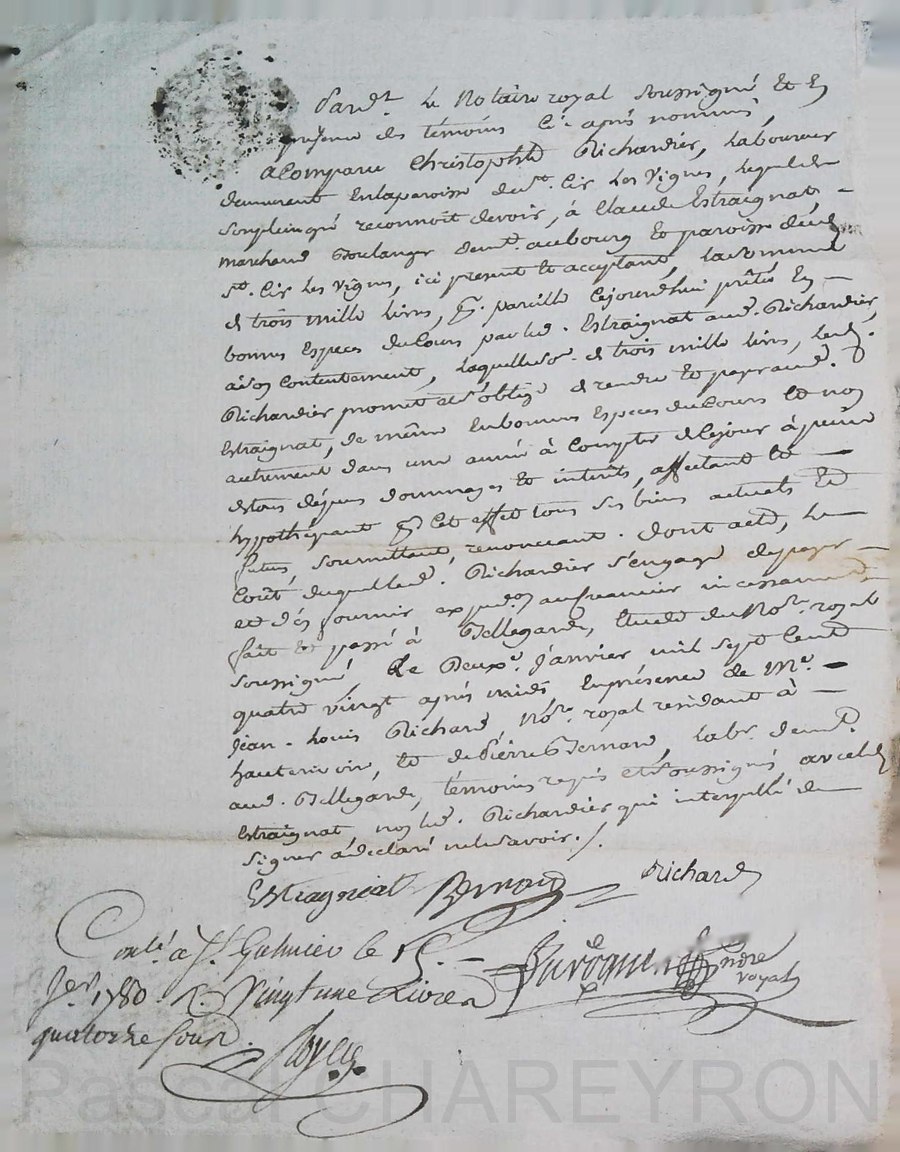 Pardt. Le Notaire royal soussigné Et En
présence des témoins Ci-après nommés,
a Comparu Christophle Richardier, Laboureur
demeurant En la paroisse de st. Cir Les Vignes, lequel de
son plein gré reconnoit devoir, à Claude Estraignat -
marchand Boulanger demt. au bourg Et paroisse dud.
st. Cir Les Vignes, ici présent Et acceptant, la somme
de trois mille livres, pareille Cejourd'hui prêtée En -
bonnes Especes du Cours par led. Estraignat aud. Richardier,
à son Contentement, laquelle de trois mille livres, led.
Richardier promet et s'oblige de rendre Et payer aud.
Estraignat, de même En bonnes Especes du Cours Et non
autrement dans une année à Compter de Cejour à peine
de tous dépens dommages Et intérêts, affectant Et -
hypothéquant Cet effet tous ses biens actuels Et
futurs soumettant, renonçant. Dont acte, Le
Coût duquel led. Richardier s'engage de payer -
et d'en fournir expedon. au Creancier incessamment
fait Et passé à Bellegarde, Etude du Nore. royal
soussigné, Le Deuxe. Janvier mil sept Cent
quatre vingt après midi, En présence de Me. -
Jean-Louis Richard Nore. royal résidant à -
hauterivoire, Et de Pierre Bernard, Labr. demt.
aud. Bellegarde, témoins requis et soussignés avec led.
Estraignat non led. Richardier qui interpellé de
signer a déclaré ne le savoir. /.
Estragniat Bernard Richard
Conlé. a St. Galmier le 15. -
Jer. 1780 R. Vingt une Livres
quatorze sous.
nore
royal
Pascal CHAREYRON